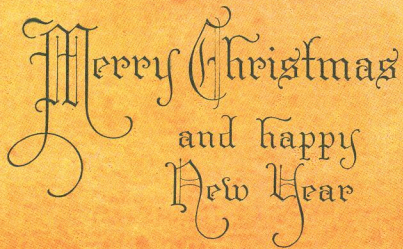 Merry Christmas
and happy
New Year